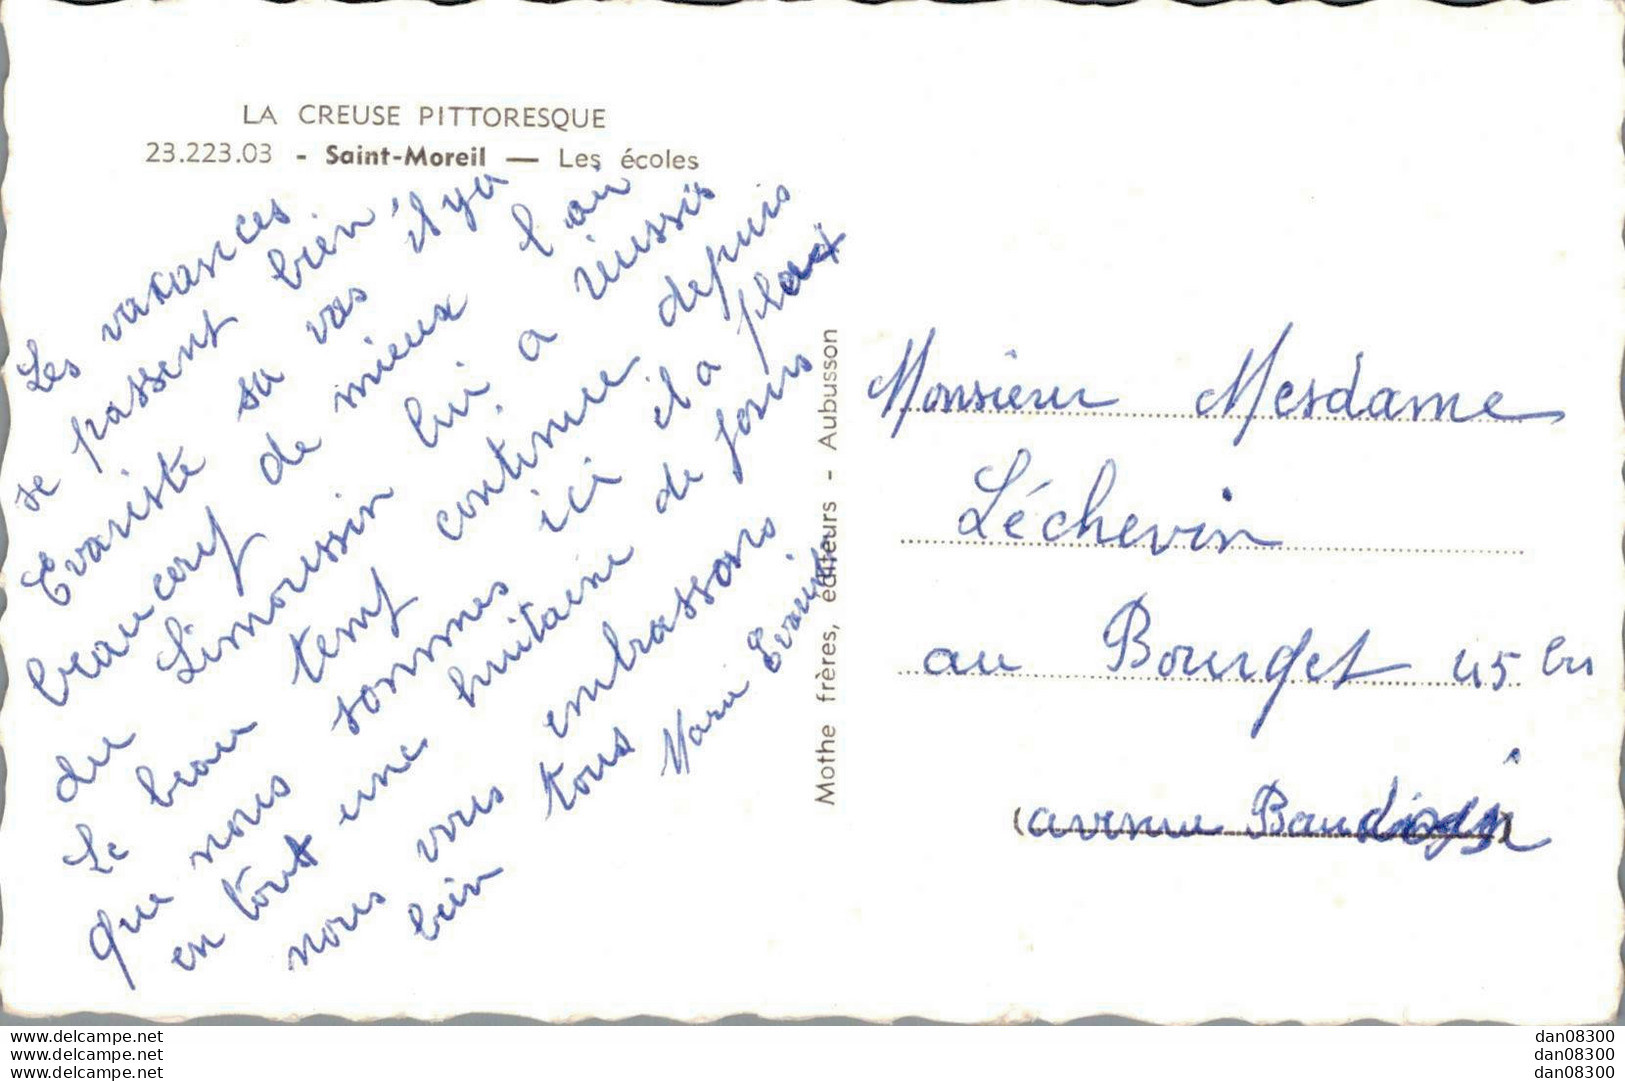 LA CREUSE PITTORESQUE
23.223.03 - Saint-Moreil — Les écoles
Les vacances
se passent bien, il y a
Evariste sa vas
beaucoup de mieux l'air
du Limoussin lui a réussis
Le beau temp continue depuis
que nous sommes ici il a plax
en tout une huitaine de jours
nous vous embrassons
bien tous Marie Evariste
Mothe frères, éditeurs - Aubusson
Monsieur Mesdame
Léchevin
au Bourget 45 bis
avenue
www.delcampe.net
www.delcampe.net
www.delcampe.net
dan08300
dan08300
dan08300